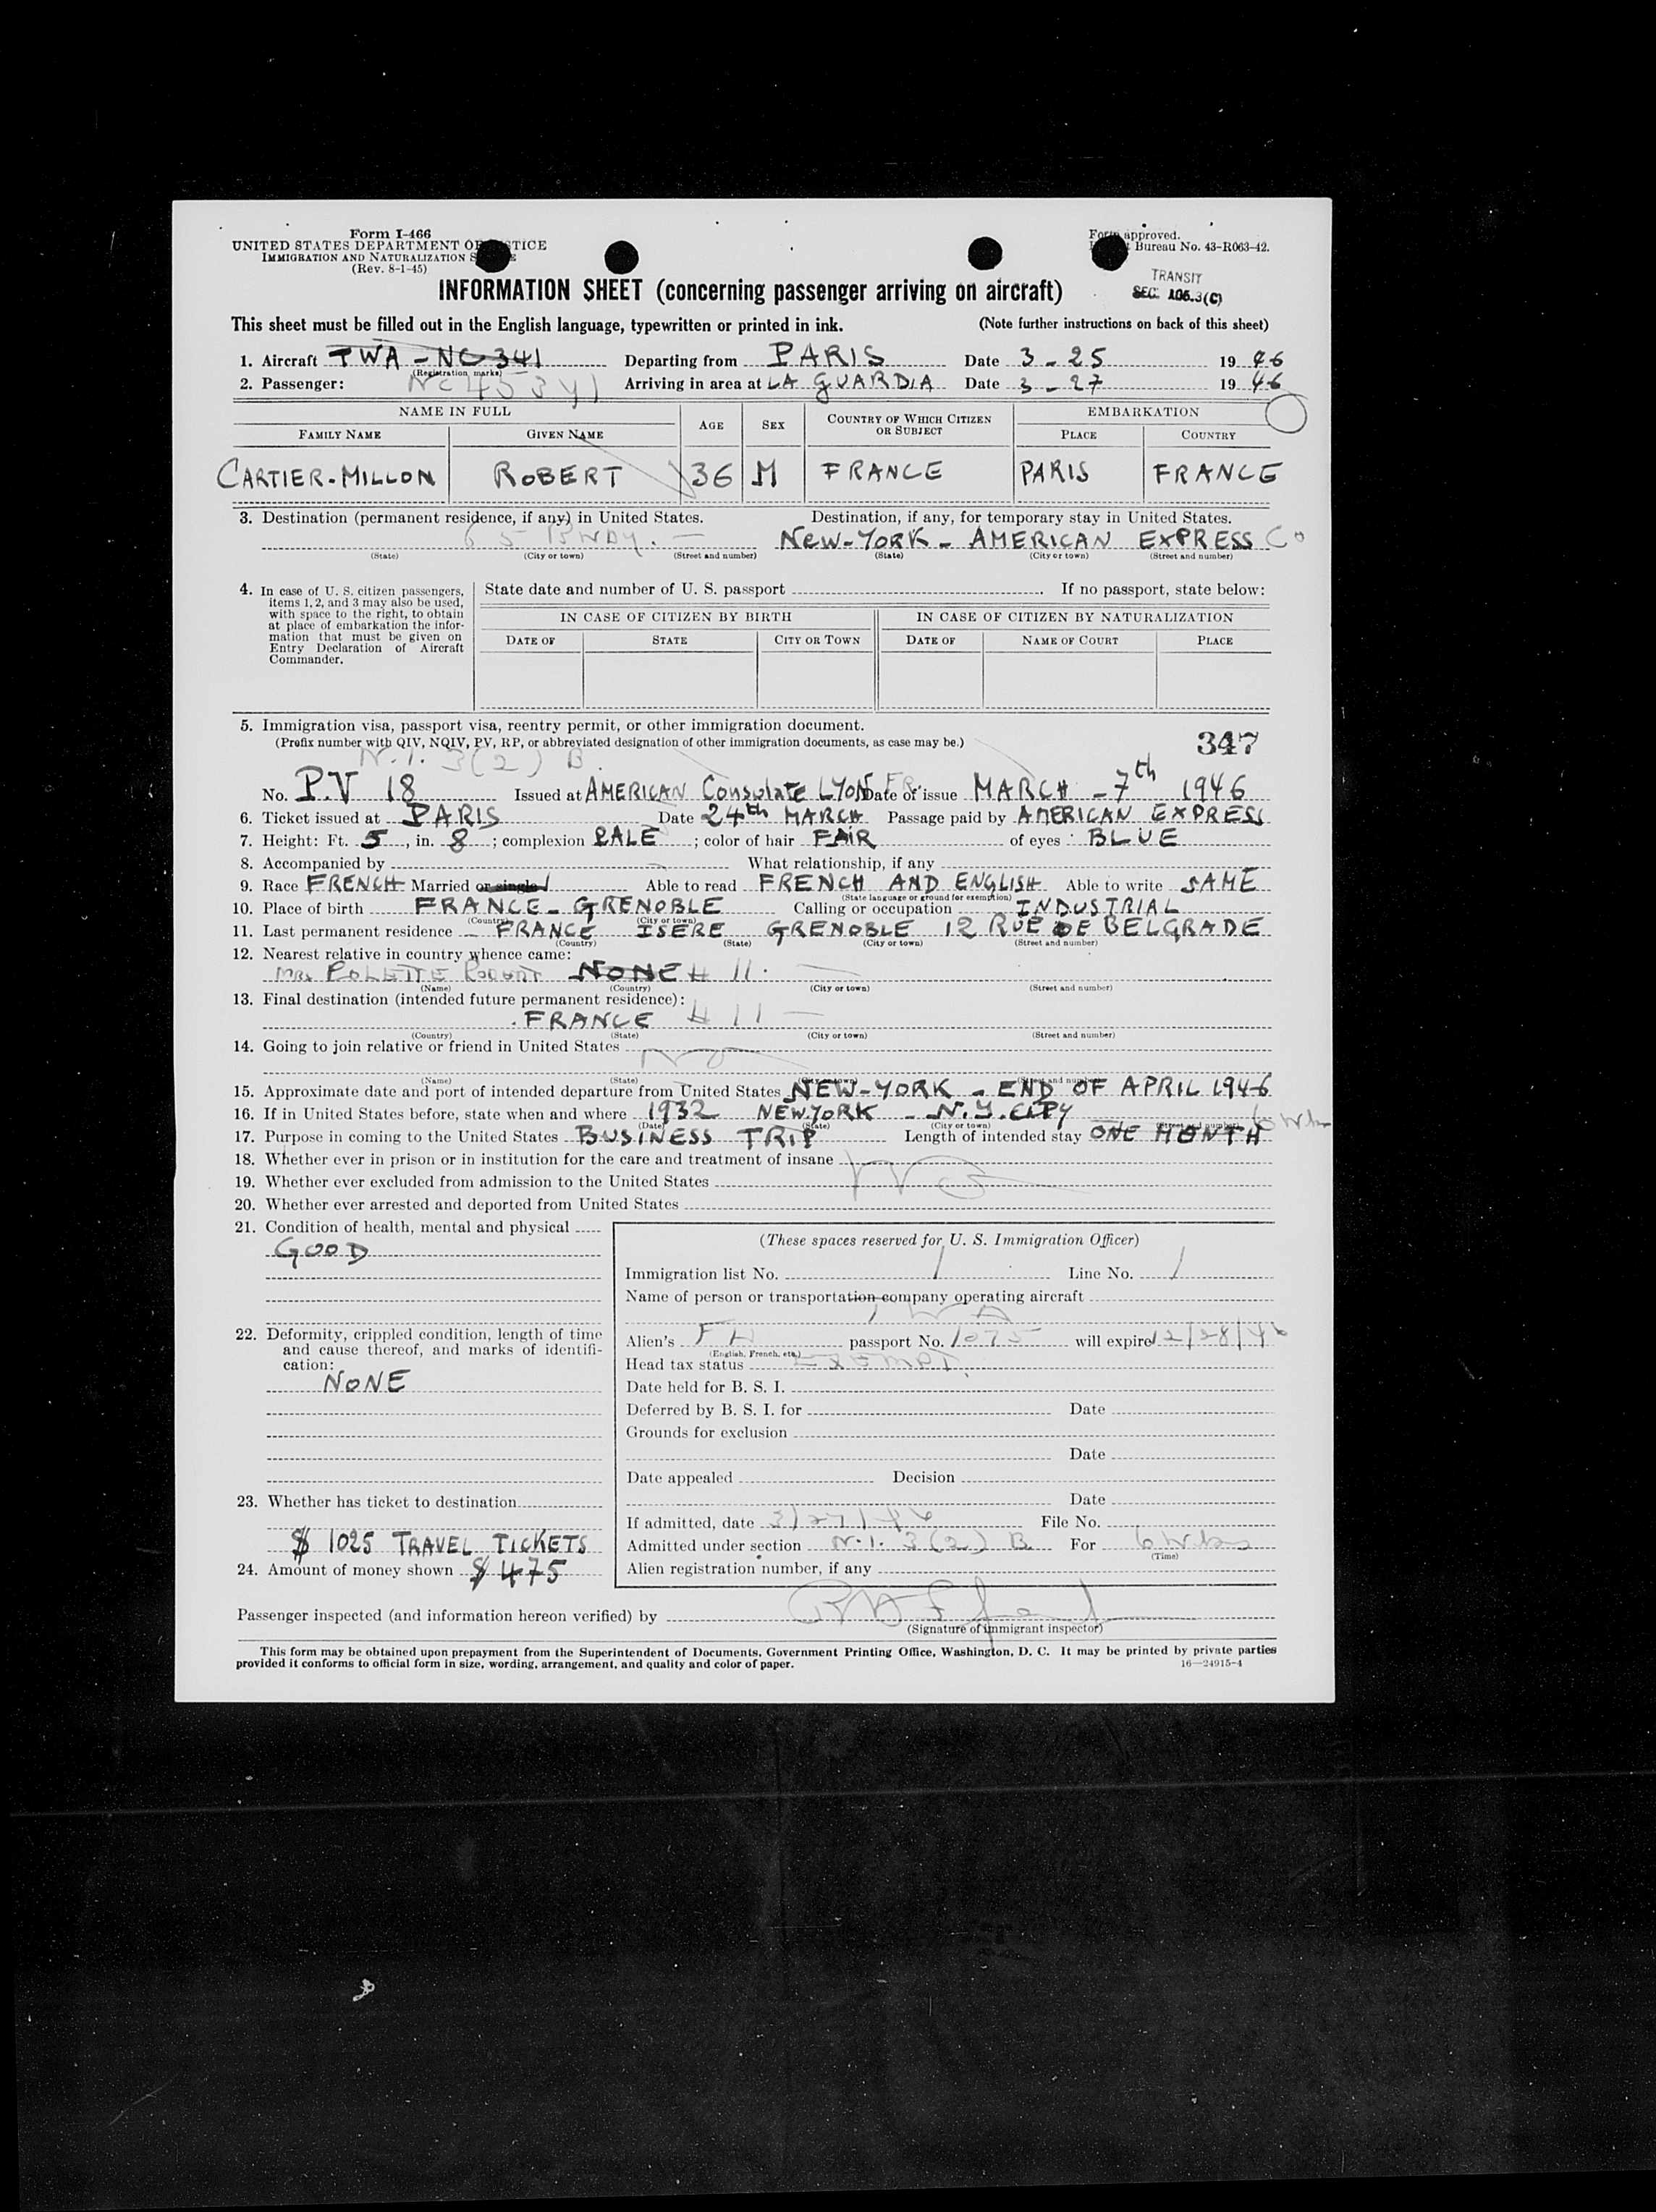 Form I-466
UNITED STATES DEPARTMENT OF JUSTICE
IMMIGRATION AND NATURALIZATION
(Rev. 8-1-45)
Form approved.
Bureau No. 43-R063-42.
TRANSIT
SEC. 105.3(C)
INFORMATION SHEET (concerning passenger arriving on aircraft)
This sheet must be filled out in the English language, typewritten or printed in ink. (Note further instructions on back of this sheet)
1. Aircraft TWA - NC 341 Departing from PARIS Date 3 - 25 1946
(Registration marks)
2. Passenger: NC45341 Arriving in area at LA GUARDIA Date 3 - 27 1946
NAME IN FULL AGE SEX COUNTRY OF WHICH CITIZEN OR SUBJECT EMBARKATION
FAMILY NAME GIVEN NAME PLACE COUNTRY
CARTIER-MILLON ROBERT 36 M FRANCE PARIS FRANCE
3. Destination (permanent residence, if any) in United States. Destination, if any, for temporary stay in United States.
65 BWDY. — NEW-YORK - AMERICAN EXPRESS Co
(State) (City or town) (Street and number) (State) (City or town) (Street and number)
4. In case of U. S. citizen passengers, items 1, 2, and 3 may also be used, with space to the right, to obtain at place of embarkation the information that must be given on Entry Declaration of Aircraft Commander.
State date and number of U. S. passport If no passport, state below:
IN CASE OF CITIZEN BY BIRTH IN CASE OF CITIZEN BY NATURALIZATION
DATE OF STATE CITY OR TOWN DATE OF NAME OF COURT PLACE
5. Immigration visa, passport visa, reentry permit, or other immigration document.
(Prefix number with QIV, NQIV, PV, RP, or abbreviated designation of other immigration documents, as case may be.) 347
N.I. 3(2) B.
No. P.V 18 Issued at AMERICAN Consulate LYON FR. Date of issue MARCH - 7th 1946
6. Ticket issued at PARIS Date 24th MARCH Passage paid by AMERICAN EXPRESS
7. Height: Ft. 5, in. 8; complexion PALE; color of hair FAIR of eyes BLUE
8. Accompanied by What relationship, if any
9. Race FRENCH Married or single Able to read FRENCH AND ENGLISH Able to write SAME
(State language or ground for exemption)
10. Place of birth FRANCE - GRENOBLE Calling or occupation INDUSTRIAL
(Country) (City or town)
11. Last permanent residence FRANCE ISERE GRENOBLE 12 RUE DE BELGRADE
(Country) (State) (City or town) (Street and number)
12. Nearest relative in country whence came:
MRS POLETTE ROBERT NONE # 11. —
(Name) (Country) (City or town) (Street and number)
13. Final destination (intended future permanent residence):
FRANCE # 11 —
(Country) (State) (City or town) (Street and number)
14. Going to join relative or friend in United States NO
(Name) (State) (City or town) (Street and number)
15. Approximate date and port of intended departure from United States NEW-YORK - END OF APRIL 1946
16. If in United States before, state when and where 1932 NEW.YORK - N.Y. CITY
(Date) (State) (City or town) (Street and number)
17. Purpose in coming to the United States BUSINESS TRIP Length of intended stay ONE MONTH 6 Wks
18. Whether ever in prison or in institution for the care and treatment of insane
19. Whether ever excluded from admission to the United States NO
20. Whether ever arrested and deported from United States
21. Condition of health, mental and physical
GOOD
22. Deformity, crippled condition, length of time and cause thereof, and marks of identification:
NONE
23. Whether has ticket to destination
$ 1025 TRAVEL TICKETS
24. Amount of money shown $ 475
(These spaces reserved for U. S. Immigration Officer)
Immigration list No. 1 Line No. 1
Name of person or transportation company operating aircraft
TWA
Alien's FH passport No. 1075 will expire 12/28/46
(English, French, etc.)
Head tax status EXEMPT
Date held for B. S. I.
Deferred by B. S. I. for Date
Grounds for exclusion
Date
Date appealed Decision
Date
If admitted, date 3/27/46 File No.
Admitted under section N.I. 3(2) B For 6 Wks
(Time)
Alien registration number, if any
Passenger inspected (and information hereon verified) by
(Signature of immigrant inspector)
This form may be obtained upon prepayment from the Superintendent of Documents, Government Printing Office, Washington, D. C. It may be printed by private parties
provided it conforms to official form in size, wording, arrangement, and quality and color of paper. 16—24915-4